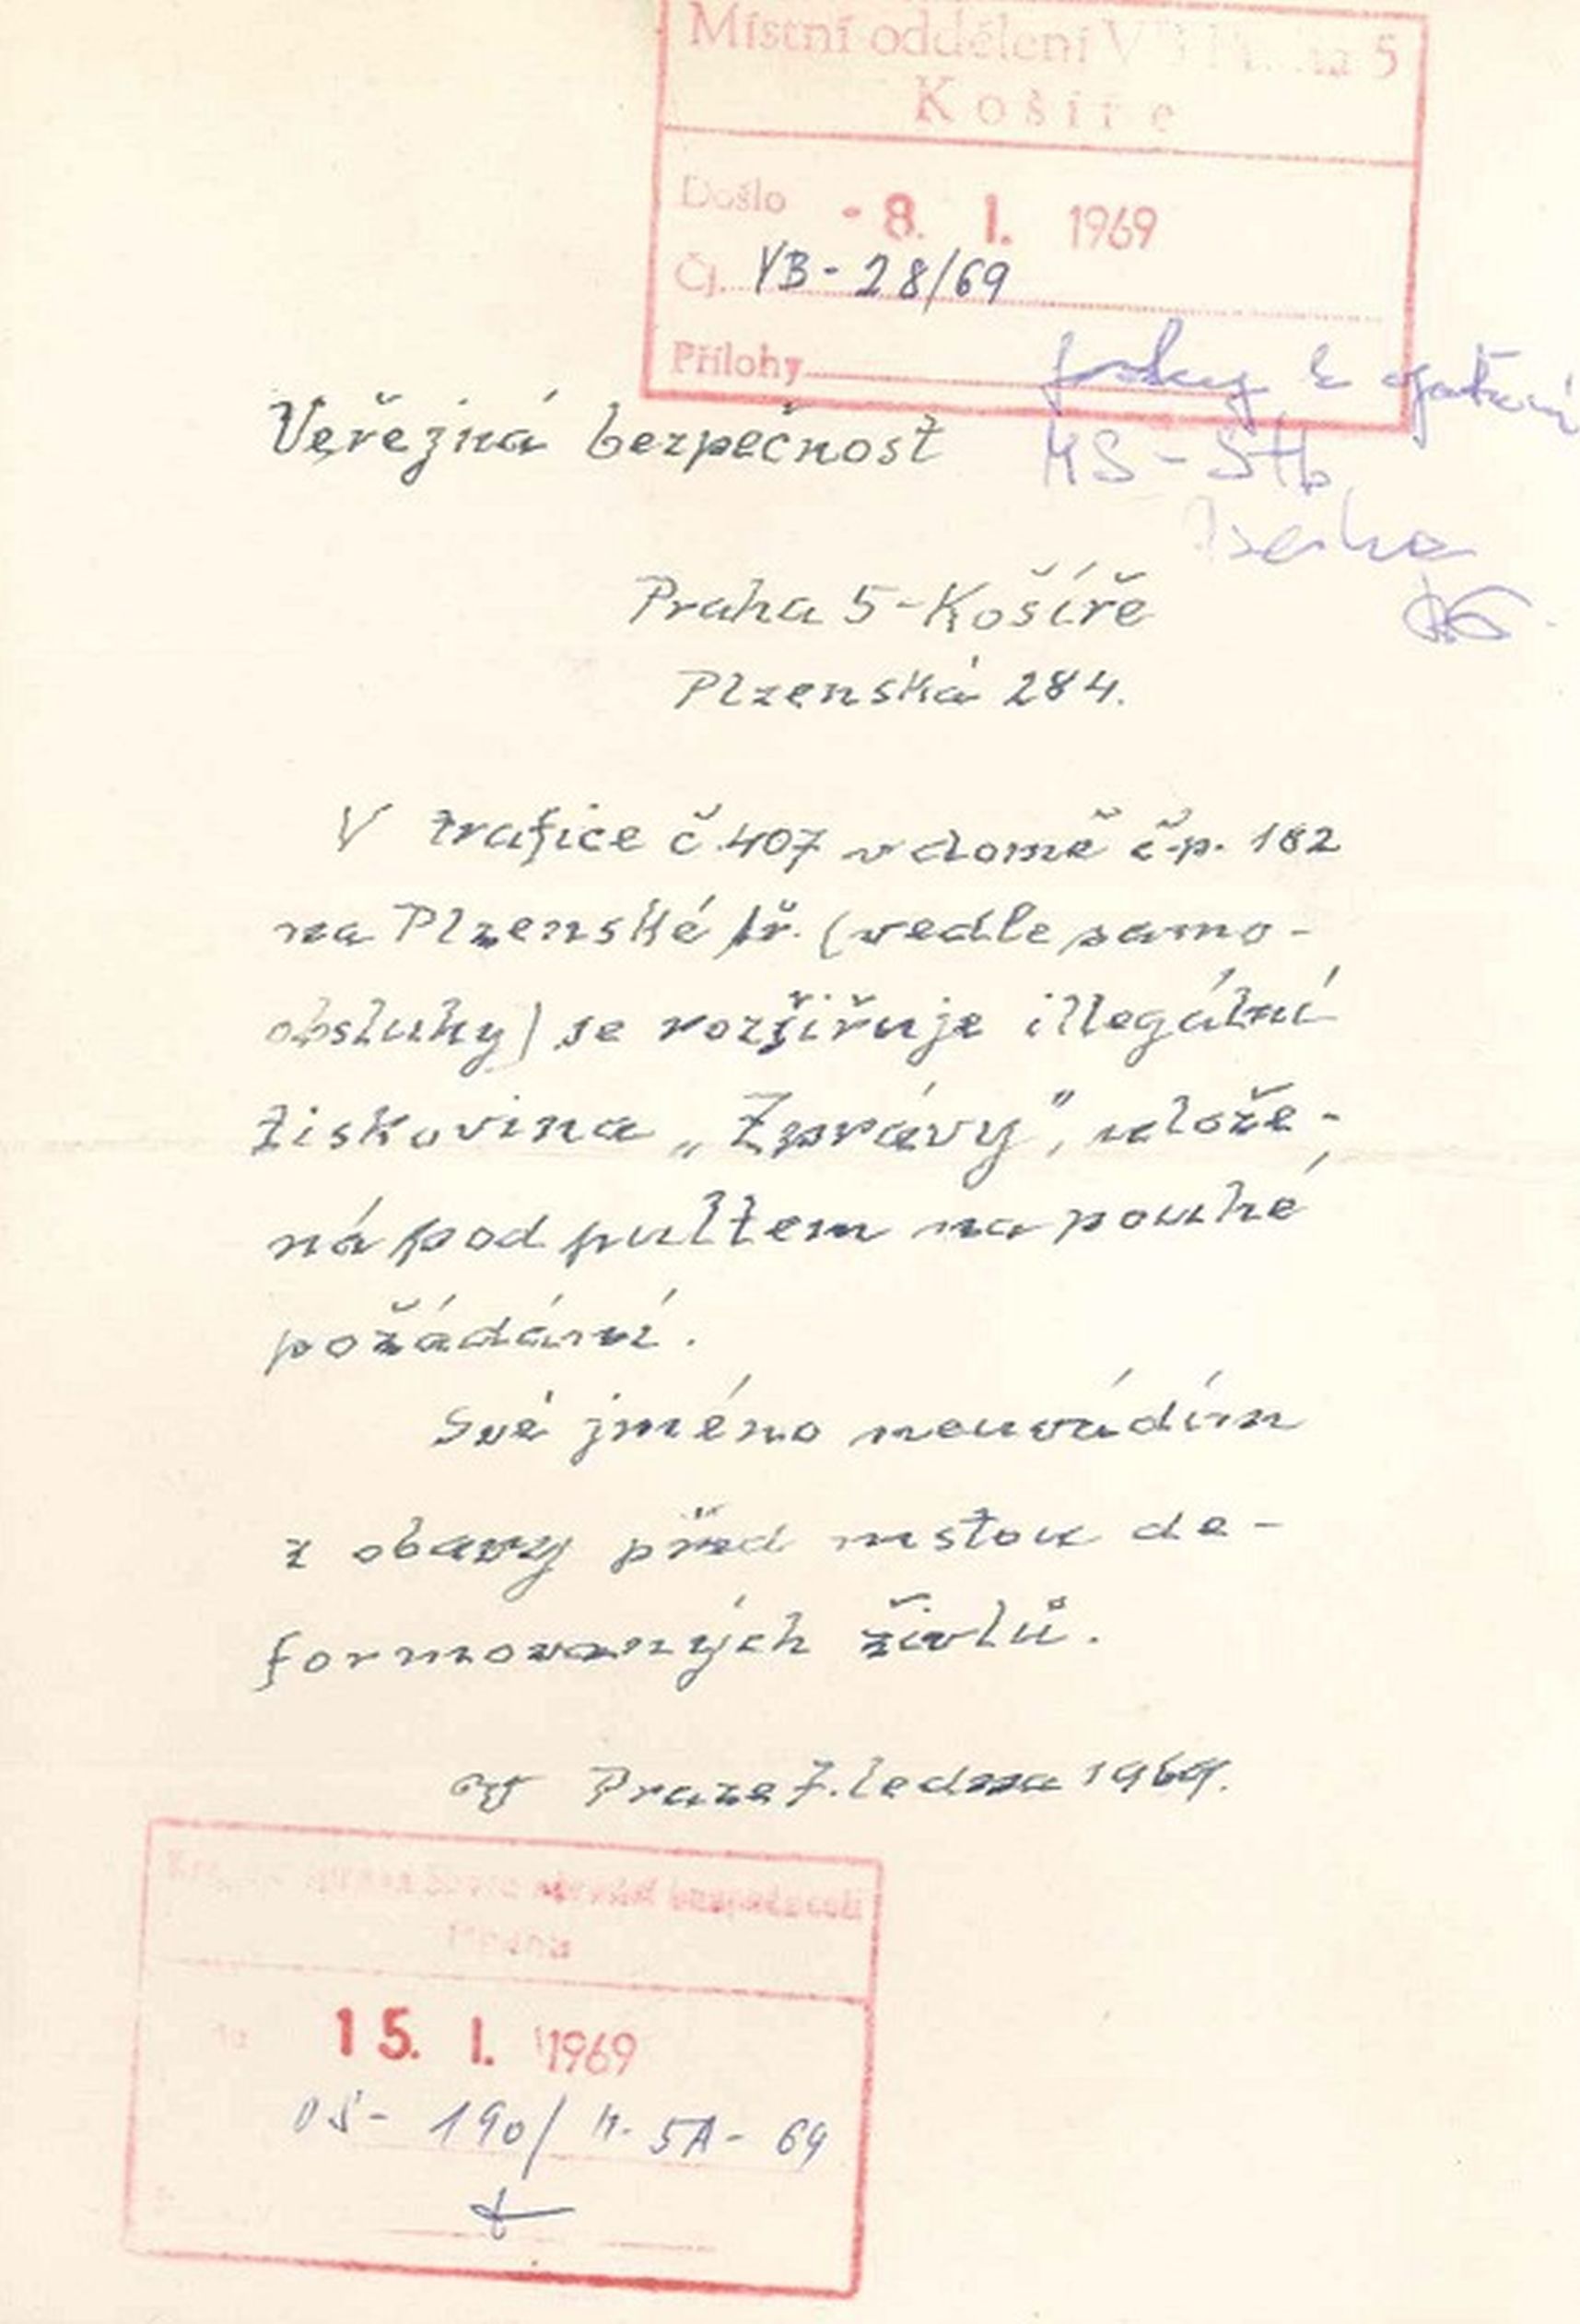 Místní oddělení VB Praha 5
Košíře
Došlo - 8. I. 1969
Čj. VB - 28/69
Přílohy
MS - Stb
Veřejná bezpečnost
Praha 5 - Košíře
Plzenská 284.
V trafice č. 407 v domě č.p. 182
na Plzenské tř. (vedle samo-
obsluhy) se rozšiřuje illegální
tiskovina „Zprávy", ulože-
ná pod pultem na pouhé
požádání.
Své jméno neuvádím
z obavy před mstou de-
formovaných živlů.
V Praze 7. ledna 1969.
15. I. 1969
190/ 5A - 69